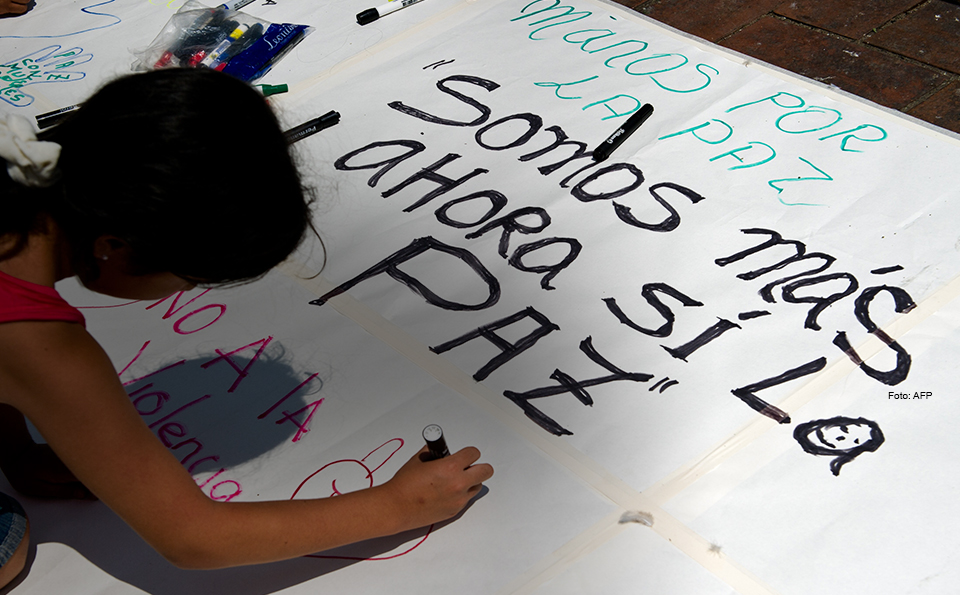 manos POR
LA PAZ
"Somos más
aHORa SÍ La
PAZ"
NO A lA
Violencia
Foto: AFP